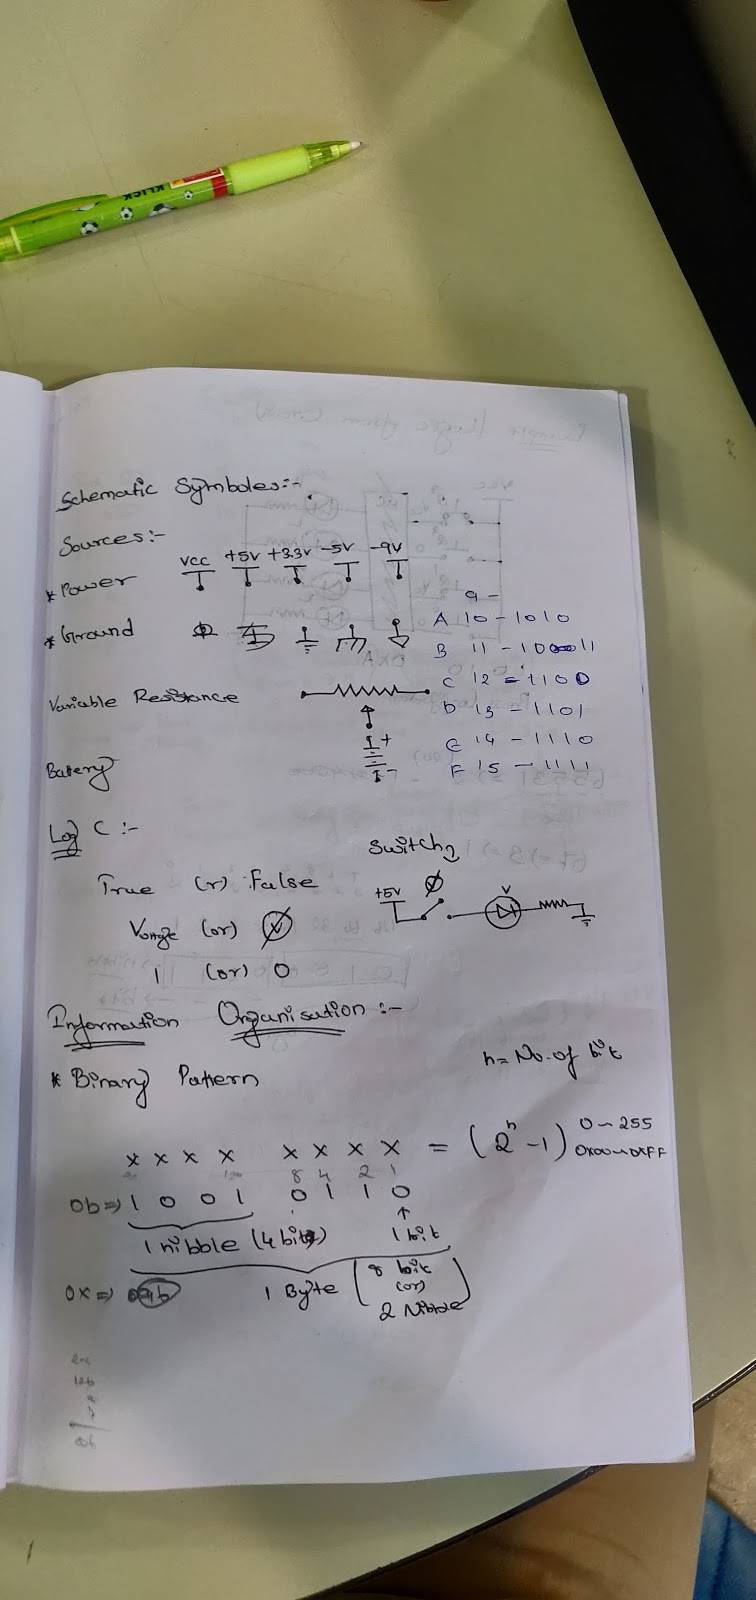 KLICK
Schematic Symboles:-
Sources:-
* Power VCC +5V +3.3V -5V -9V
* Ground
9 -
A 10 - 1010
B 11 - 1011
C 12 - 1100
D 13 - 1101
E 14 - 1110
F 15 - 1111
Variable Resistance
+
-
Batery
Log C :-
True (r) :False
(or)
1 (or) 0
Switch
+5V
V
Information Organisation :-
n = No. of bit
* Binary Pattern
x x x x x x x x = (2ⁿ-1) 0-255
0x00-0xFF
8 4 2 1
0b => 1 0 0 1 0 1 1 0
1 nibble (4 bits) 1 bit
1 Byte (8 bit
(or)
2 Nibble)
0x =>